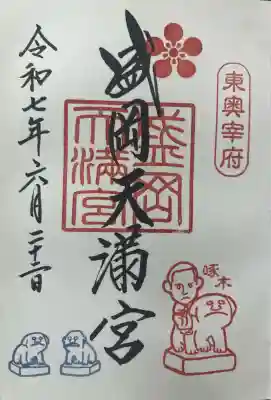 東奥宰府
盛岡天満宮
盛岡天満宮
啄木
令和七年六月二十二日